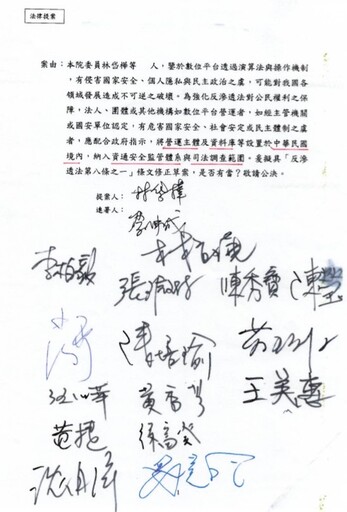 法律提案
案由：本院委員林岱樺等　　人，鑒於數位平台透過演算法與操作機制
，有侵害國家安全、個人隱私與民主政治之虞，可能對我國各
領域發展造成不可逆之破壞。為強化反滲透法對公民權利之保
障，法人、團體或其他機構如數位平台營運者，如經主管機關
或國安單位認定，有危害國家安全、社會安定或民主體制之虞
者，應配合政府指示，將營運主體及資料庫等設置於中華民國
境內，納入資通安全監管體系與司法調查範圍。爰擬具「反滲
透法第八條之一」條文修正草案，是否有當？敬請公決。
提案人：林岱樺
連署人：李坤城
李柏毅
陳秀寶
陳培瑜
王美惠
黃捷
徐富癸